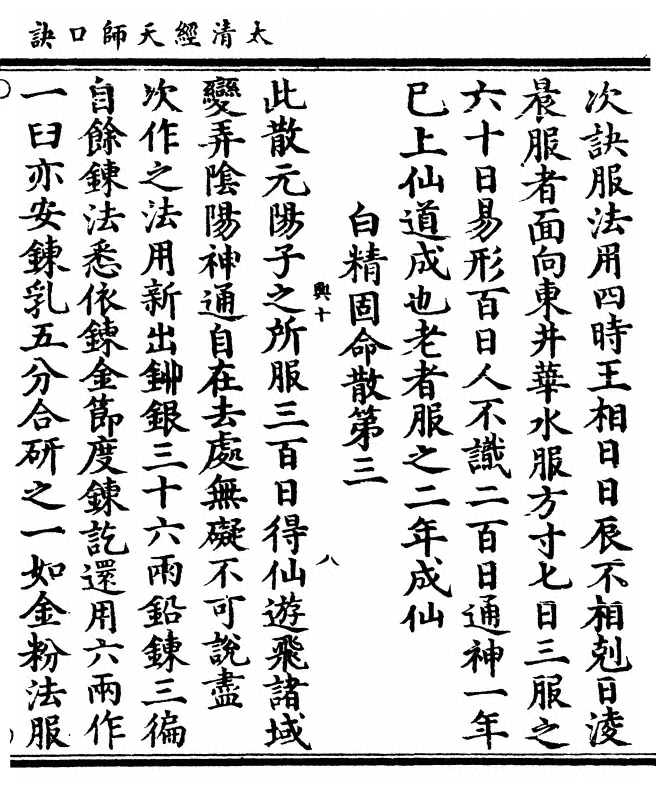 太清經天師口訣
次訣服法用四時王相日日辰不相剋日淩
晨服者面向東井華水服方寸七日三服之
六十日易形百日人不識二百日通神一年
已上仙道成也老者服之二年成仙
白精固命散第三
興十 八
此散元陽子之所服三百日得仙遊飛諸域
變弄陰陽神通自在去處無礙不可說盡
次作之法用新出銀三十六兩鉛鍊三徧
自餘鍊法悉依鍊金節度鍊訖還用六兩作
一臼亦安鍊乳五分合研之一如金粉法服